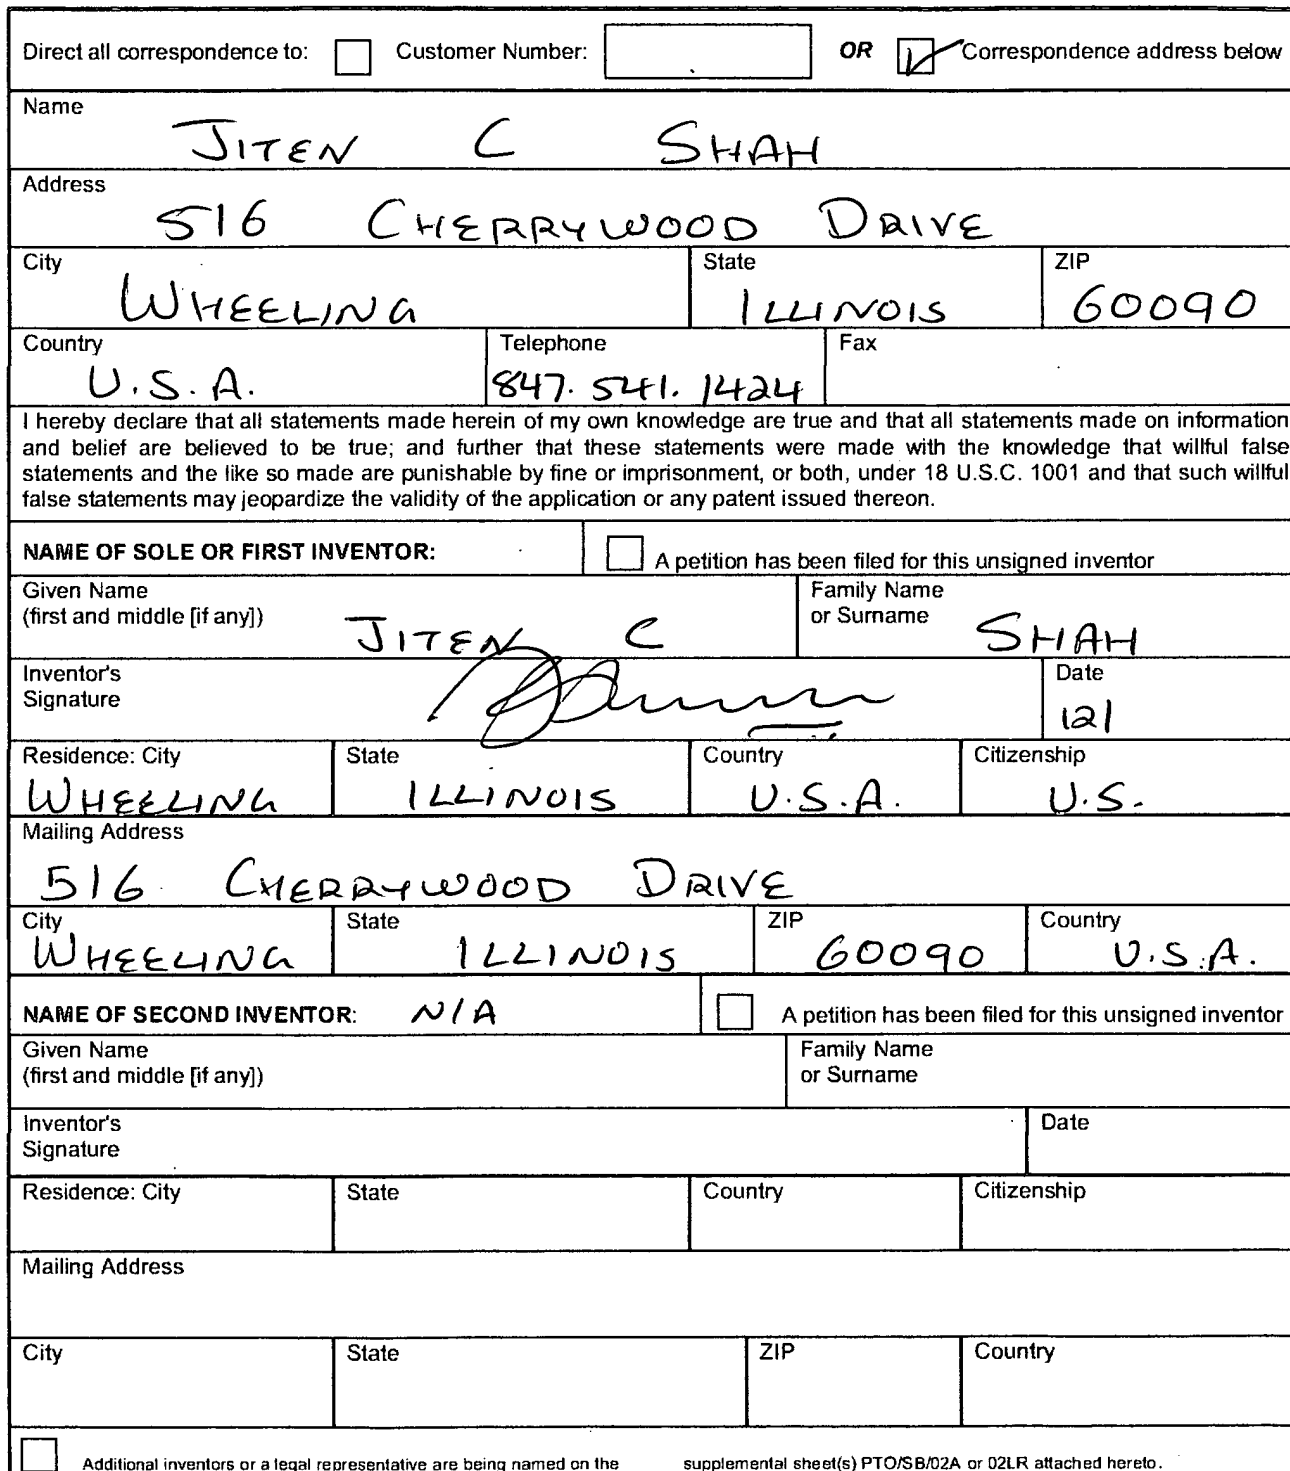 Direct all correspondence to: Customer Number: OR Correspondence address below
Name
JITEN C SHAH
Address
516 CHERRYWOOD DRIVE
City State ZIP
WHEELING ILLINOIS 60090
Country Telephone Fax
U.S.A. 847. 541. 1424
I hereby declare that all statements made herein of my own knowledge are true and that all statements made on information
and belief are believed to be true; and further that these statements were made with the knowledge that willful false
statements and the like so made are punishable by fine or imprisonment, or both, under 18 U.S.C. 1001 and that such willful
false statements may jeopardize the validity of the application or any patent issued thereon.
NAME OF SOLE OR FIRST INVENTOR: A petition has been filed for this unsigned inventor
Given Name Family Name
(first and middle [if any]) or Surname
JITEN C SHAH
Inventor's Date
Signature
12/
Residence: City State Country Citizenship
WHEELING ILLINOIS U.S.A. U.S.
Mailing Address
516 CHERRYWOOD DRIVE
City State ZIP Country
WHEELING ILLINOIS 60090 U.S.A.
NAME OF SECOND INVENTOR: N/A A petition has been filed for this unsigned inventor
Given Name Family Name
(first and middle [if any]) or Surname
Inventor's Date
Signature
Residence: City State Country Citizenship
Mailing Address
City State ZIP Country
Additional inventors or a legal representative are being named on the supplemental sheet(s) PTO/SB/02A or 02LR attached hereto.